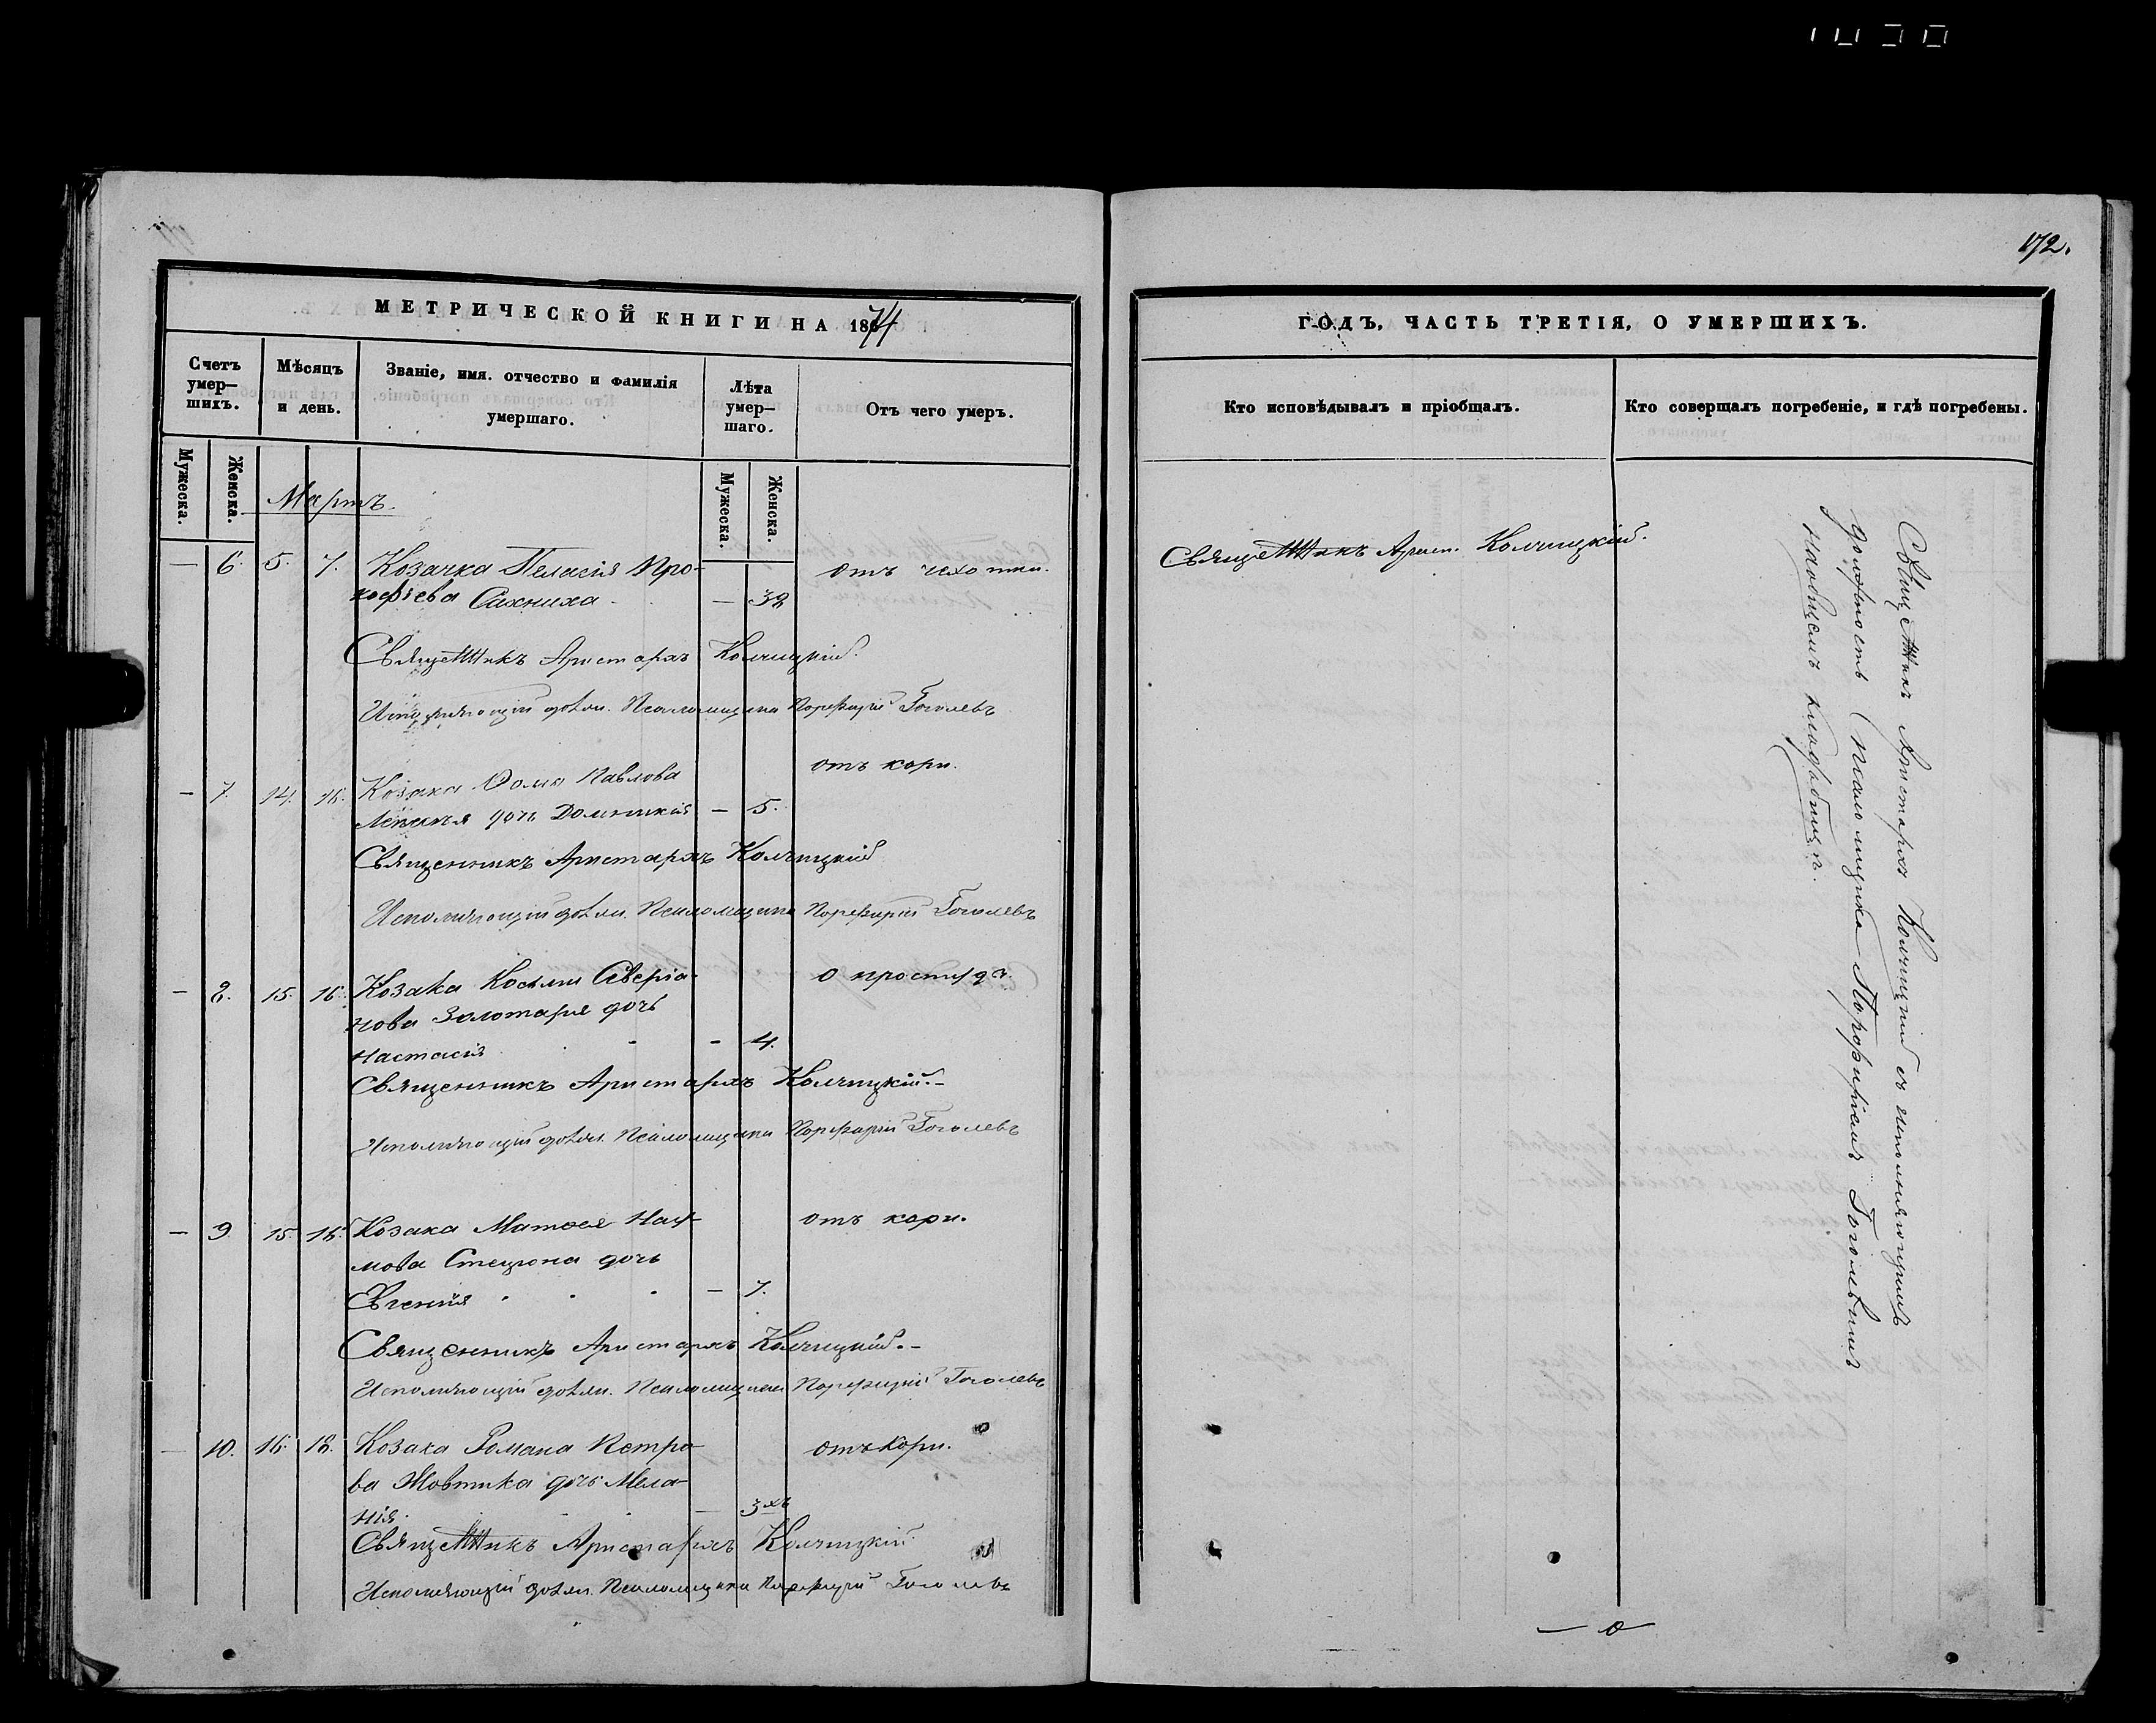 172.
МЕТРИЧЕСКОЙ КНИГИ НА 1874
Счетъ умер-
шихъ.
Мѣсяцъ
и день.
Званіе, имя. отчество и фамилія
умершаго.
Лѣта
умер-
шаго.
Отъ чего умеръ.
Мужеска.
Женска.
Мужеска.
Женска.
Мартъ.
— 6. 5. 7. Козачка Пелагія Про- отъ чехотки.
кофіева Сахниха — 32
Священникъ Аристархъ Колчицкій.
Исправляющій должн. Псаломщика Порфирій Гоголевъ
отъ кори.
— 7. 14. 16. Козака Фомы Павлова
дочь Домникія — 5.
Священникъ Аристархъ Колчицкій
Исполняющій должн. Псаломщика Порфирій Гоголевъ
— 8. 15. 16. Козака Косьми Аверіа- о простудѣ.
нова Золотаря дочь
Настасія - - 4.
Священникъ Аристархъ Колчицкій.-
Исполняющій должн. Псаломщика Порфирій Гоголевъ
— 9 15. 16. Козака Матѳея Нау- отъ кори.
мова Стецюна дочь
Евгенія — 7.
Священникъ Аристархъ Колчицкій.-
Исполняющій должн. Псаломщика Порфирій Гоголевъ
— 10. 16. 18. Козака Романа Петро- отъ кори.
ва Жовтика дочь Мела-
нія. — 3хъ
Священникъ Аристархъ Колчицкій
Исполняющій должн. Псаломщика Порфирій Гоголевъ
ГОДЪ, ЧАСТЬ ТРЕТІЯ, О УМЕРШИХЪ.
Кто исповѣдывалъ и пріобщалъ.
Кто соверщалъ погребеніе, и гдѣ погребены.
Священникъ Арист. Колчицкій.
Священникъ Аристархъ Колчицкій съ исполняющимъ
должность Псаломщика Порфиріемъ Гоголевымъ
на общемъ кладбищѣ.